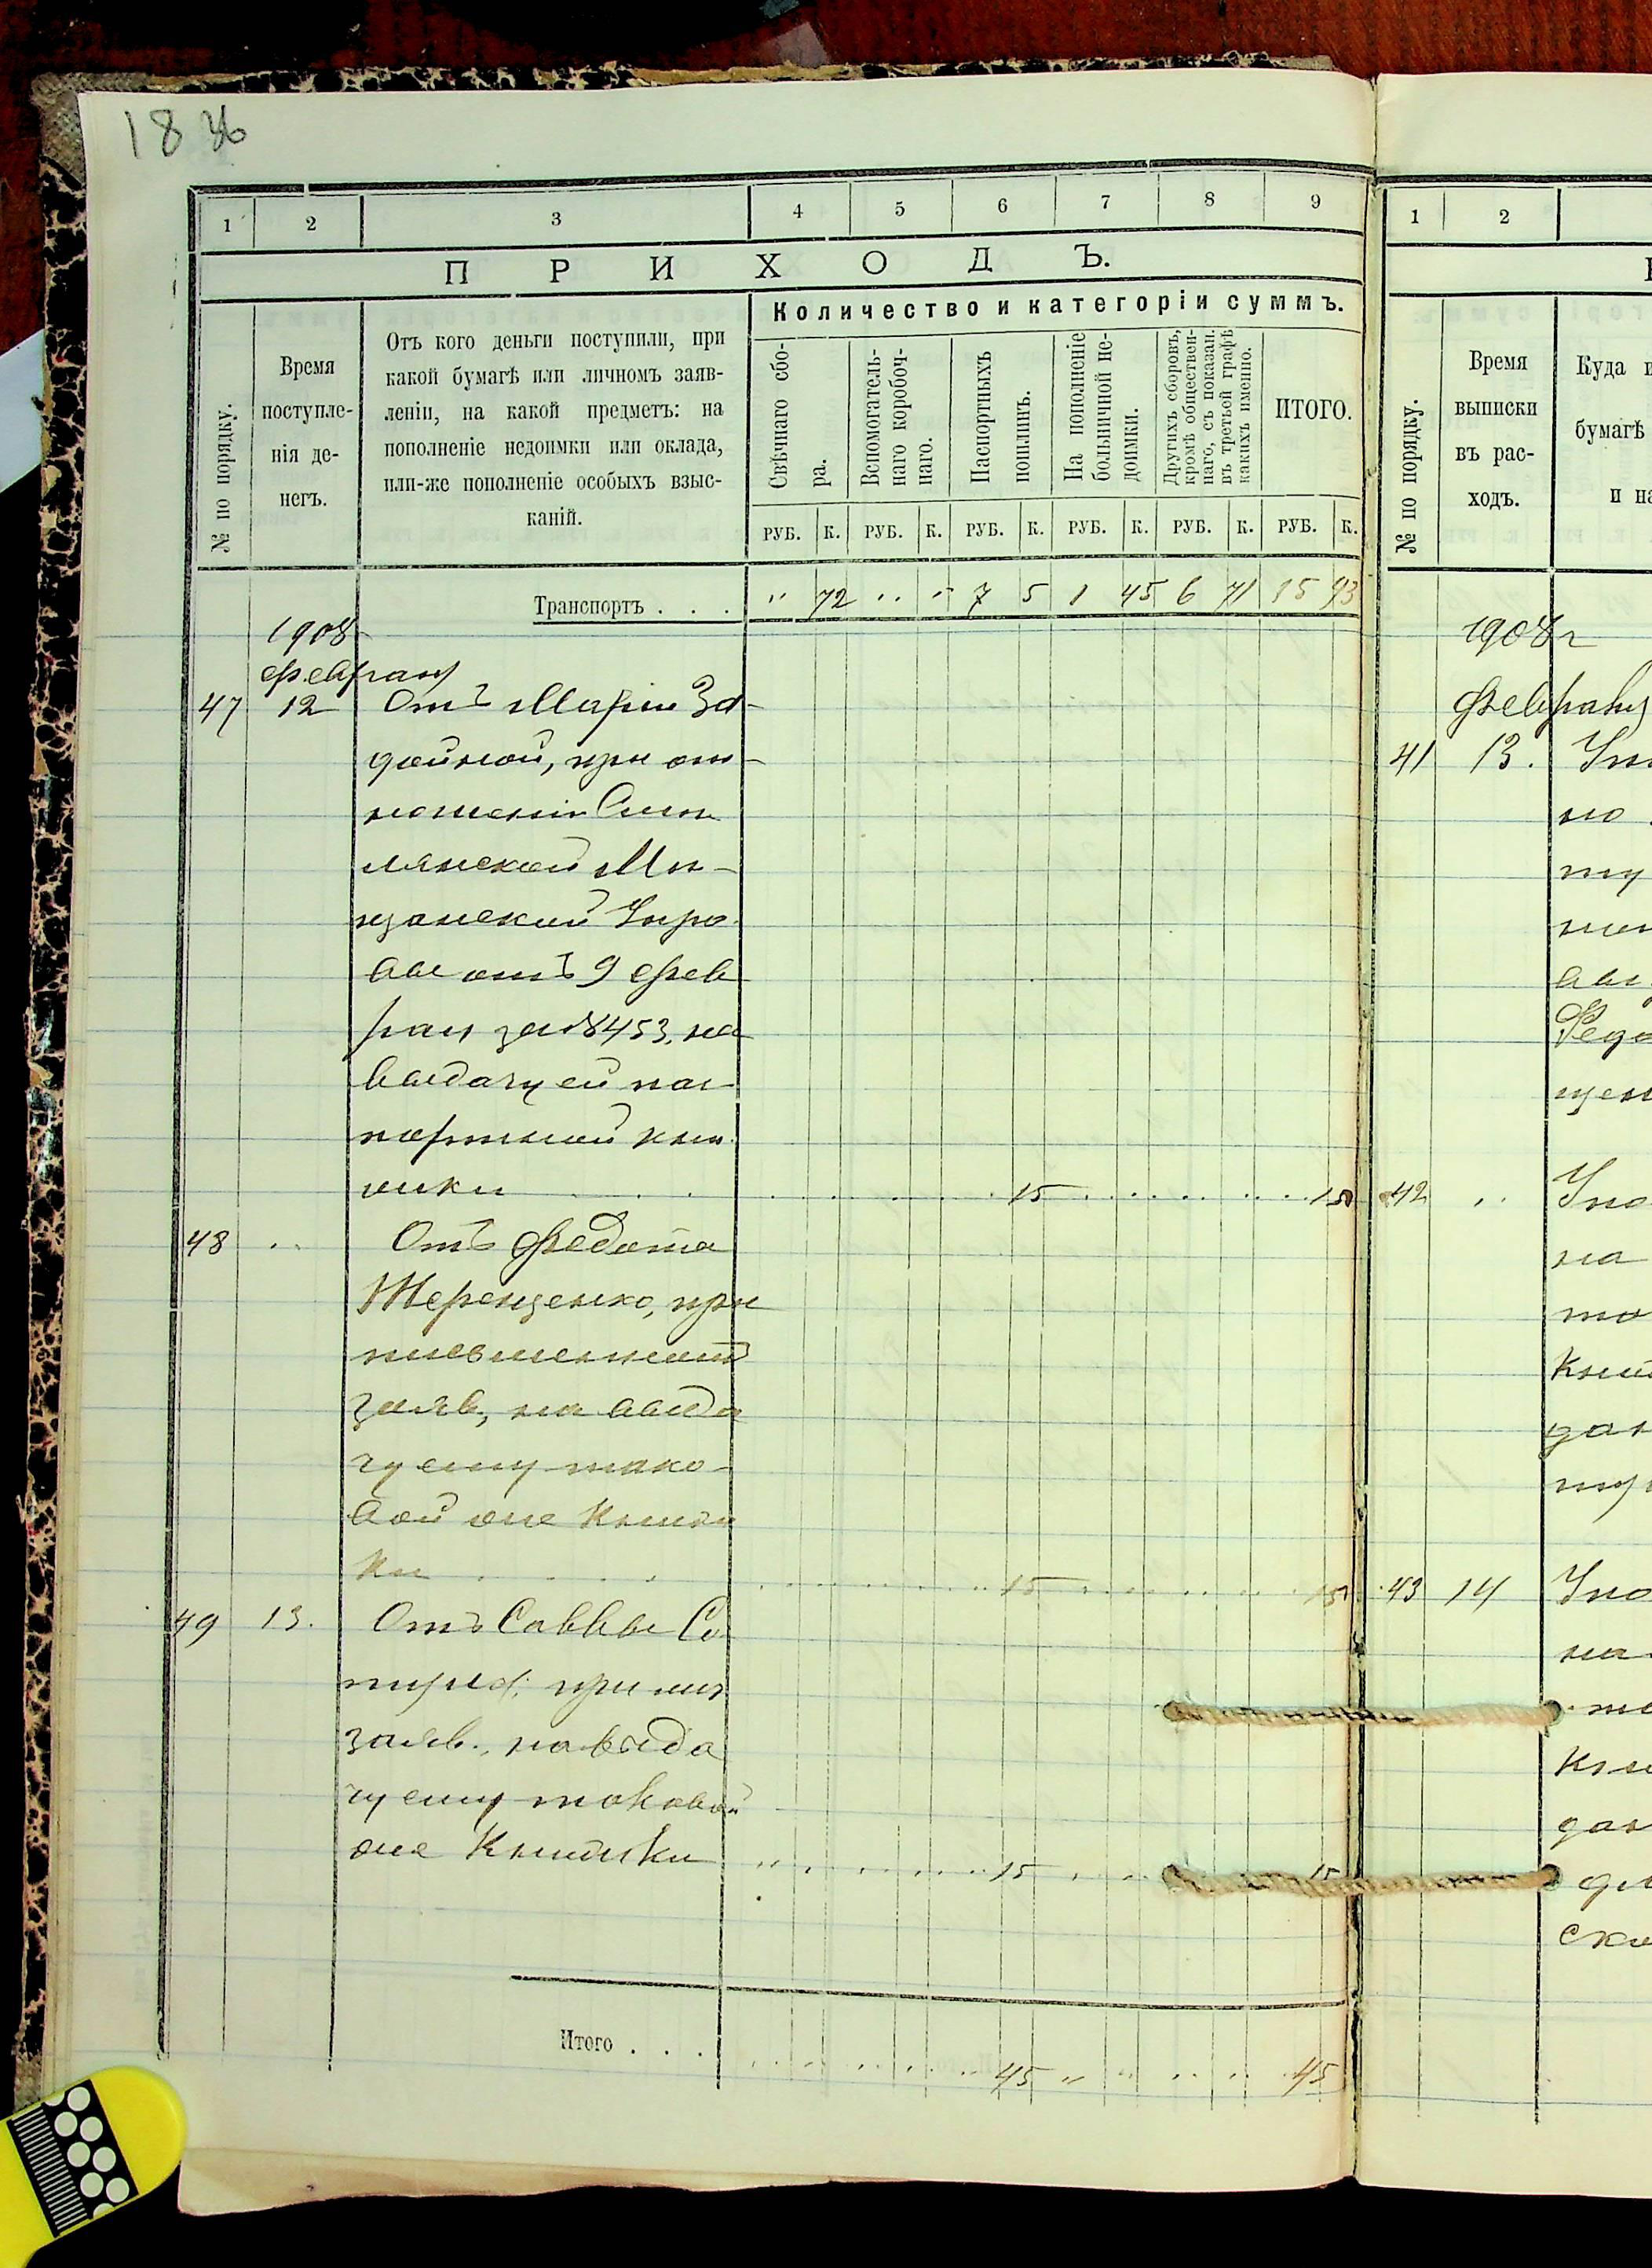 18 36
1 2 3 4 5 6 7 8 9
ПРИХОДЪ.
№ по порядку.
Время
поступле-
нія де-
негъ.
Отъ кого деньги поступили, при
какой бумагѣ или личномъ заяв-
леніи, на какой предметъ: на
пополненіе недоимки или оклада,
или-же пополненіе особыхъ взыс-
каній.
Количество и категоріи суммъ.
Свѣчнаго сбо-
ра.
Вспомогатель-
наго коробоч-
наго.
Паспортныхъ
пошлинъ.
На пополненіе
больничной не-
доимки.
Другихъ сборовъ,
кромѣ обществен-
наго, съ показан.
въ третьей графѣ
какихъ именно.
ИТОГО.
РУБ. К. РУБ. К. РУБ. К. РУБ. К. РУБ. К. РУБ. К.
Транспортъ . . . " 72 " " 7 5 1 45 6 71 15 93
1908
февраля
47 12 Отъ Маріи За-
дойной, при от-
ношеніи
Мѣ-
щанской Упра
вы отъ 9 фев
раля за № 453, на
выдачу ей пас-
портной кни
жки . . . 15 15
48 " Отъ Федота
Терещенко, при
письменномъ
заяв., на выда
чу ему тако-
вой же книж
ки . . . . 15 15
49 13. Отъ Саввы
при
заяв., на выда
чу ему таковой
же книжки " 15 15
Итого . . . 45 " " 45
1 2
№ по порядку.
Время
выписки
въ рас-
ходъ.
Куда и
бумагѣ
и на
1908 г
Февраля
41 13.
но
ту
вы
Федо
щен
42 "
на
то
Кни
43 14
на
Кни